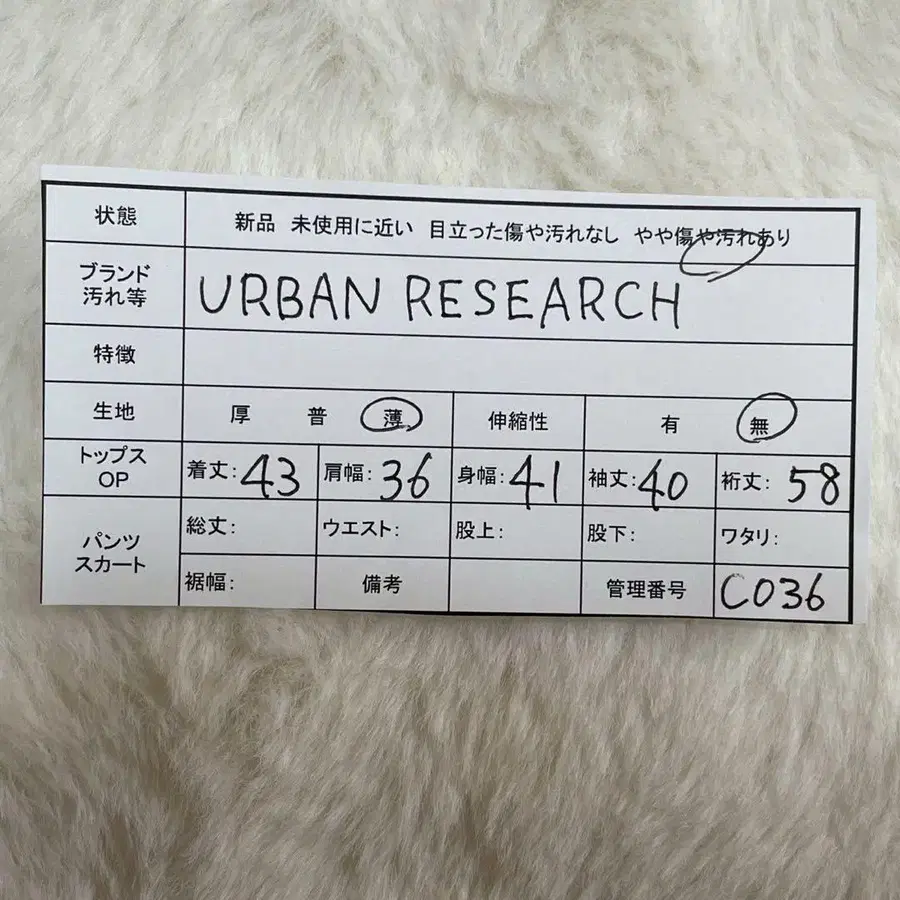 状態 新品 未使用に近い 目立った傷や汚れなし やや傷や汚れあり
ブランド
汚れ等 URBAN RESEARCH
特徴
生地 厚 普 薄 伸縮性 有 無
トップス
OP 着丈:43 肩幅:36 身幅:41 袖丈:40 裄丈:58
パンツ
スカート 総丈: ウエスト: 股上: 股下: ワタリ:
裾幅: 備考 管理番号 C036